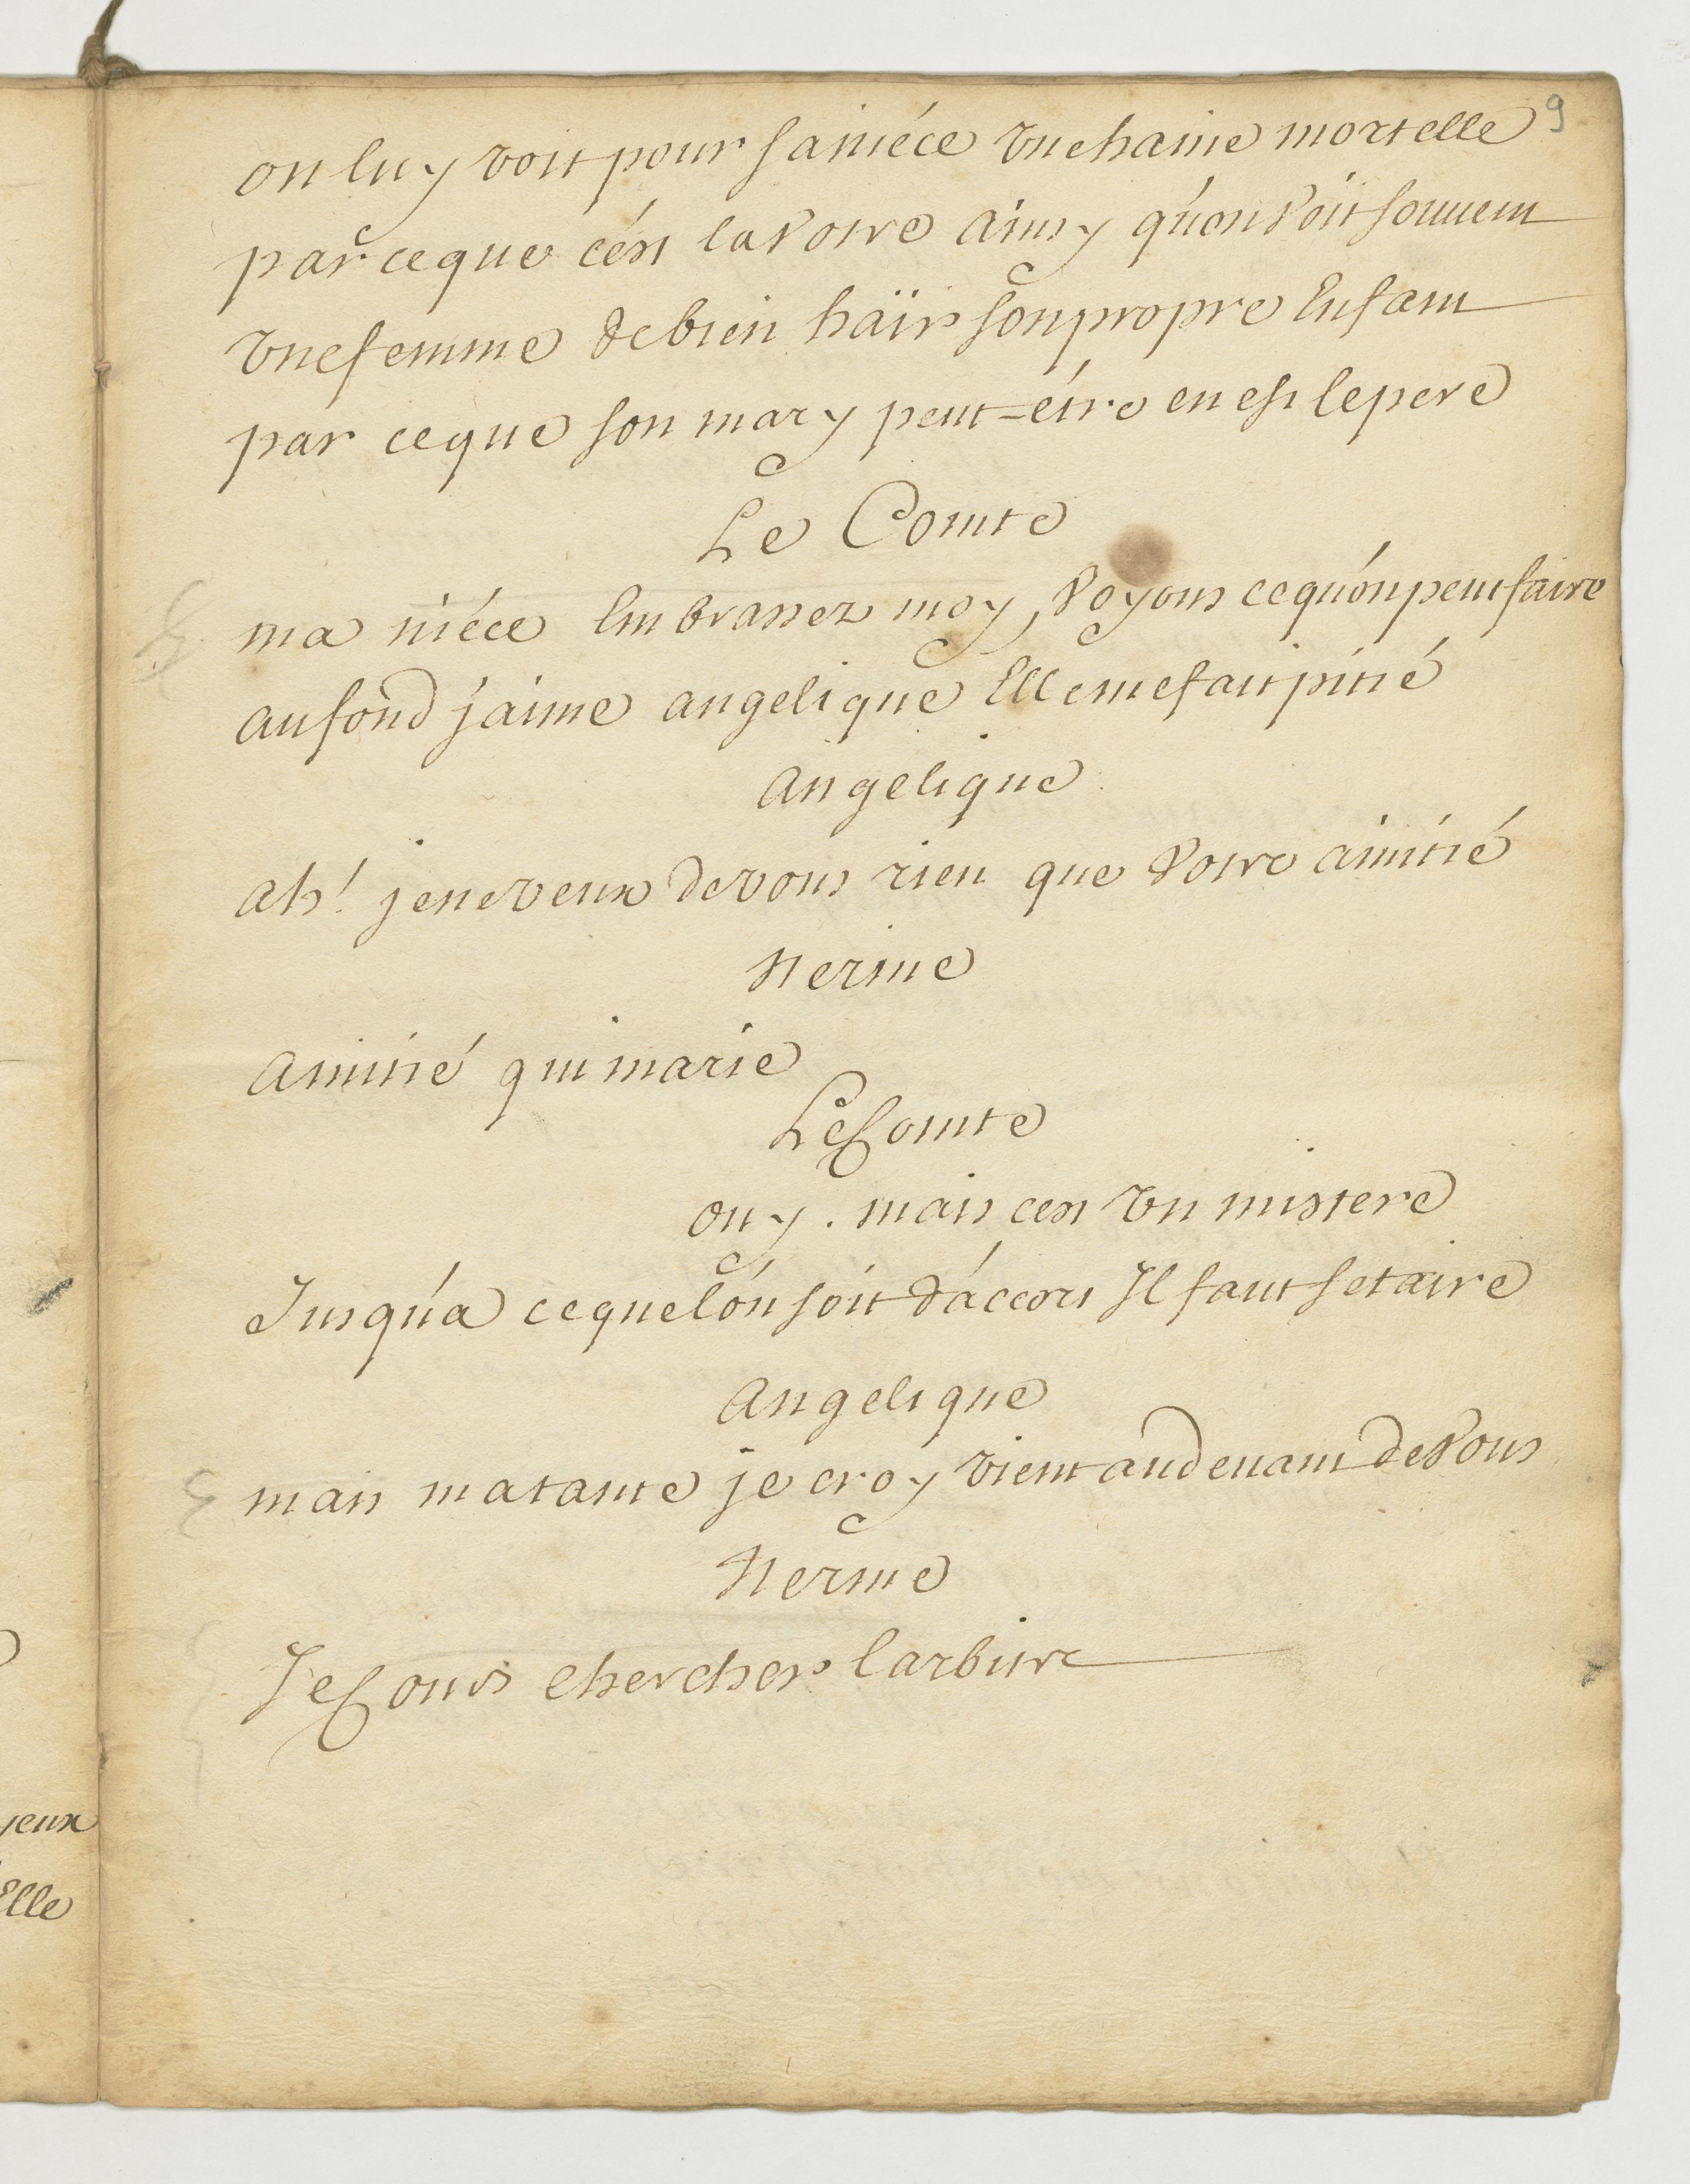 9
on luy voit pour sa niéce une haine mortelle
par ce que c'est la votre ainsy qu'on voit souuent
une femme de bien haïr son propre Enfant
par ce que son mary peut-étre en est le pere
Le Comte
ma niéce Embrassez moy, voyons ce qu'on peut faire
au fond j'aime angelique Elle me fait pitié
angelique
ah! je ne veux de vous rien que votre amitié
Nerine
amitié qui marie
Le Comte
ouy. mais cest un mistere
Jusqu'a ce que l'on soit d'accort Il faut se taire
Angelique
mais ma tante je croy vient au deuant de vous
Nerine
Je Cours chercher larbitre
yeux
Elle